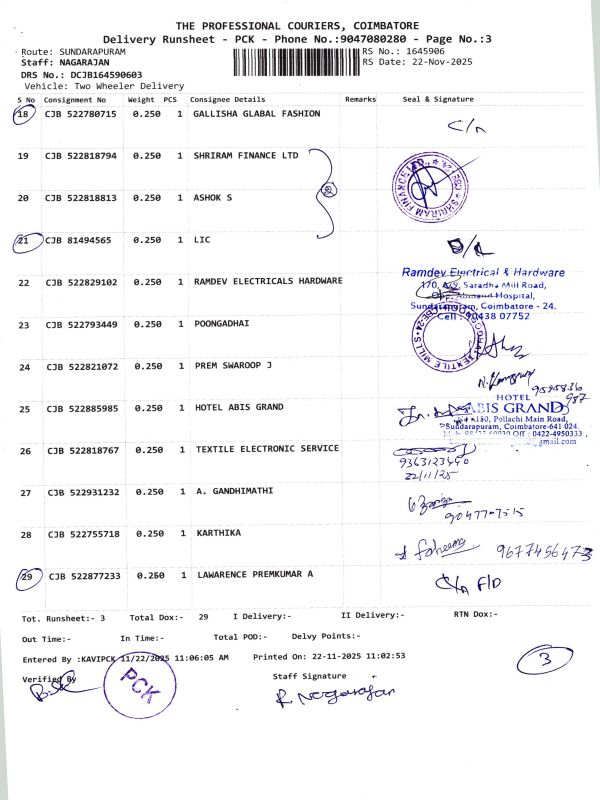 THE PROFESSIONAL COURIERS, COIMBATORE
Delivery Runsheet - PCK - Phone No.:9047080280 - Page No.:3
Route: SUNDARAPURAM RS No.: 1645906
Staff: NAGARAJAN RS Date: 22-Nov-2025
DRS No.: DCJB164590603
Vehicle: Two Wheeler Delivery
S No Consignment No Weight PCS Consignee Details Remarks Seal & Signature
18 CJB 522780715 0.250 1 GALLISHA GLABAL FASHION
19 CJB 522818794 0.250 1 SHRIRAM FINANCE LTD
20 CJB 522818813 0.250 1 ASHOK S
21 CJB 81494565 0.250 1 LIC
22 CJB 522829102 0.250 1 RAMDEV ELECTRICALS HARDWARE
Ramdev Electrical & Hardware
Saradha Mill Road,
Hospital,
Coimbatore - 24.
23 CJB 522793449 0.250 1 POONGADHAI
Cell : 90438 07752
24 CJB 522821072 0.250 1 PREM SWAROOP J
25 CJB 522885985 0.250 1 HOTEL ABIS GRAND
HOTEL
ABIS GRAND
Pollachi Main Road,
Sundarapuram, Coimbatore-641 024.
Off : 0422-4950333,
26 CJB 522818767 0.250 1 TEXTILE ELECTRONIC SERVICE
22/11/25
27 CJB 522931232 0.250 1 A. GANDHIMATHI
28 CJB 522755718 0.250 1 KARTHIKA
9677456473
29 CJB 522877233 0.250 1 LAWARENCE PREMKUMAR A
Tot. Runsheet:- 3 Total Dox:- 29 I Delivery:- II Delivery:- RTN Dox:-
Out Time:- In Time:- Total POD:- Delvy Points:-
Entered By :KAVIPCK 11/22/2025 11:06:05 AM Printed On: 22-11-2025 11:02:53
3
Verified By Staff Signature
PCK
R Nagarajan